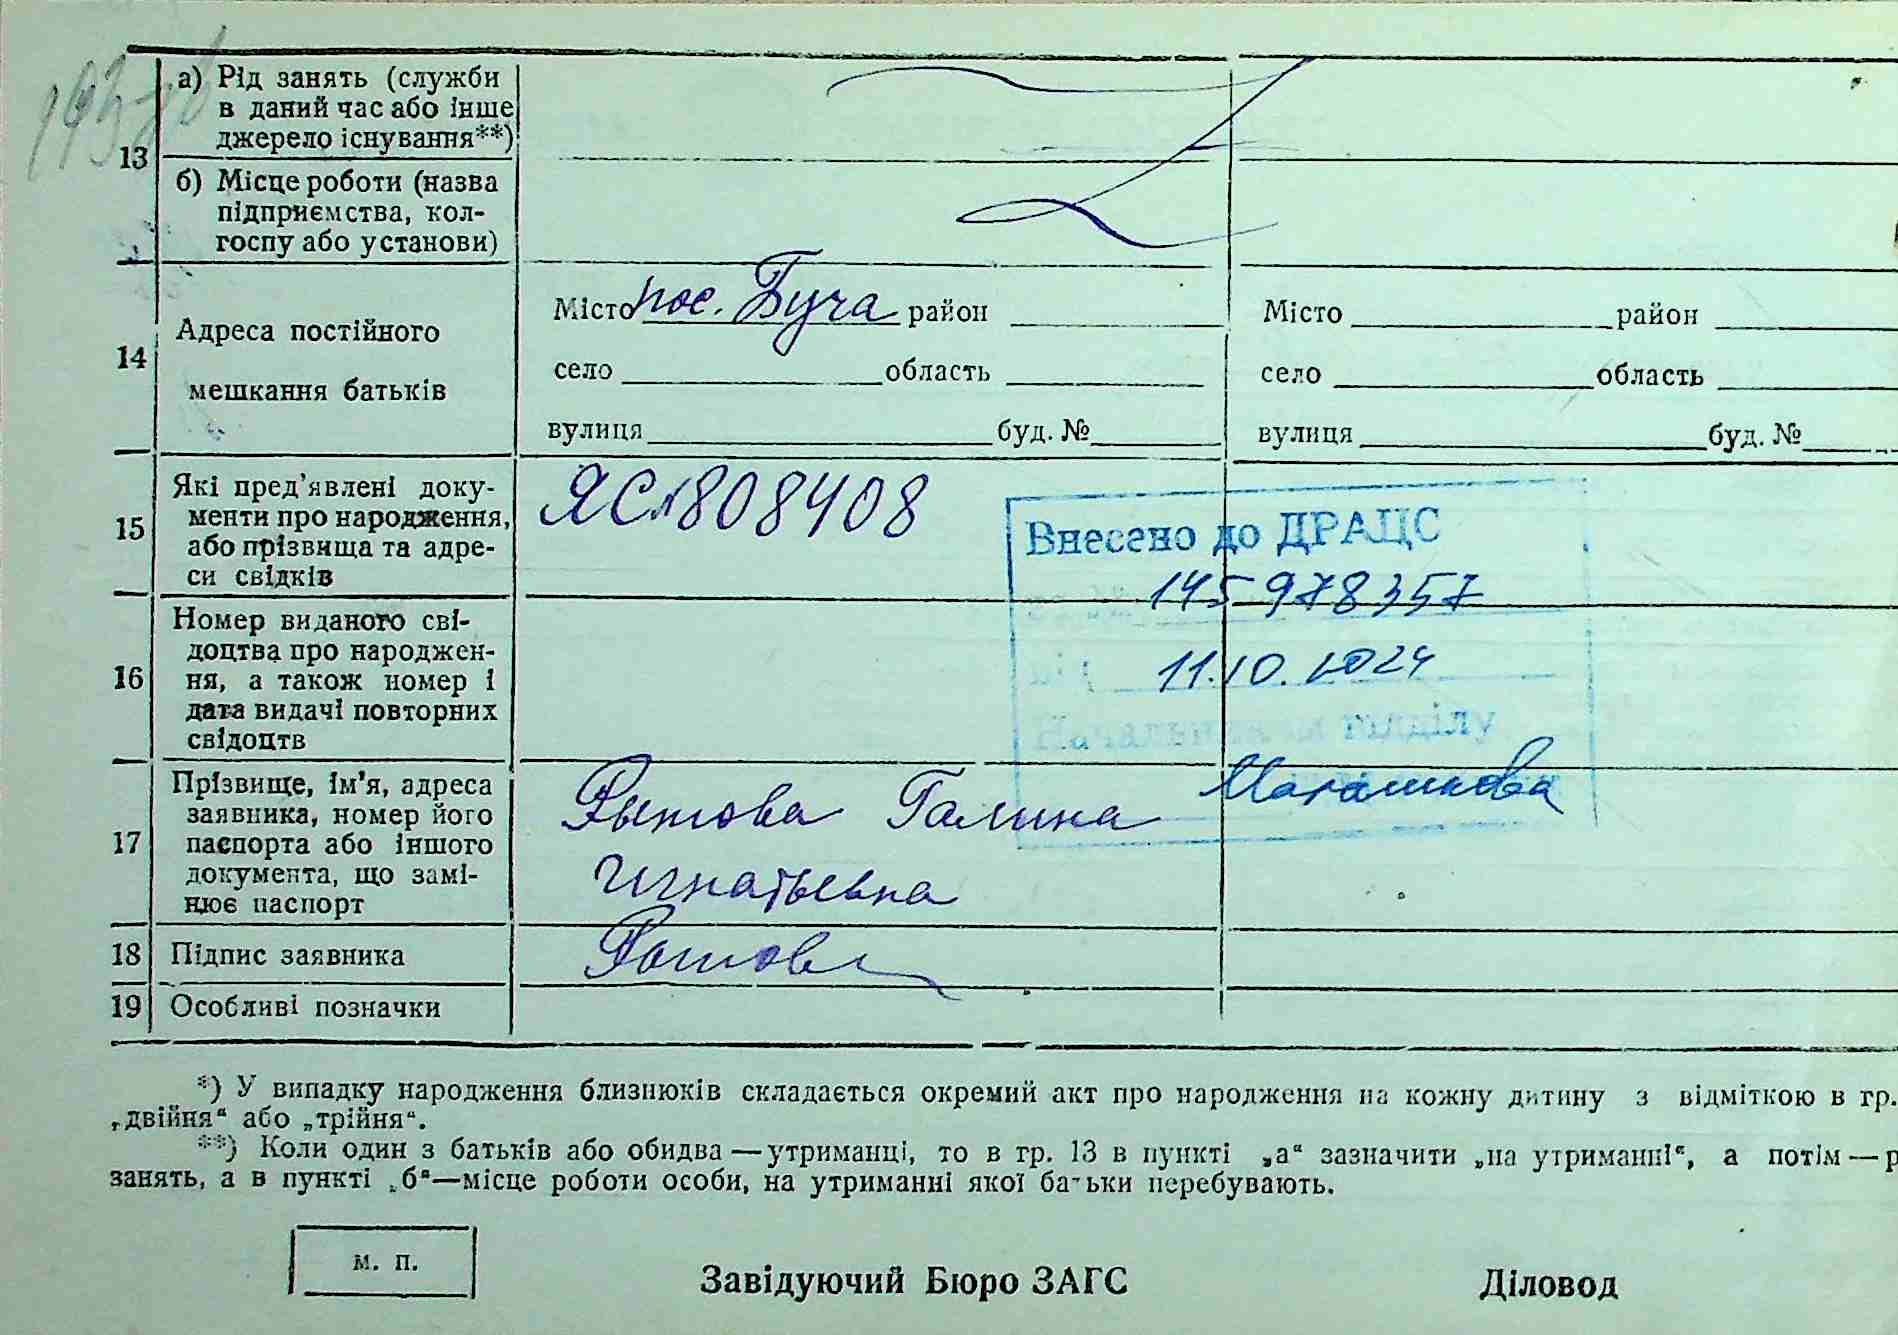 13
а) Рід занять (служби
в даний час або інше
джерело існування**)
б) Місце роботи (назва
підприємства, кол-
госпу або установи)
14
Адреса постійного
мешкання батьків
Місто пос. Буча район
село область
вулиця буд. №
Місто район
село область
вулиця буд. №
15
Які пред'явлені доку-
менти про народження,
або прізвища та адре-
си свідків
ЯСл808408
Внесено до ДРАЦС
145 978357
11.10.2024
Начальник відділу
16
Номер виданого сві-
доцтва про народжен-
ня, а також номер і
дата видачі повторних
свідоцтв
17
Прізвище, ім'я, адреса
заявника, номер його
паспорта або іншого
документа, що замі-
нює паспорт
Рытова Галина
Игнатьевна
18 Підпис заявника
19 Особливі позначки
*) У випадку народження близнюків складається окремий акт про народження на кожну дитину з відміткою в гр.
„двійня“ або „трійня“.
**) Коли один з батьків або обидва — утриманці, то в гр. 13 в пункті „а“ зазначити „на утриманні“, а потім — р
занять, а в пункті „б“—місце роботи особи, на утриманні якої батьки перебувають.
м. п.
Завідуючий Бюро ЗАГС Діловод